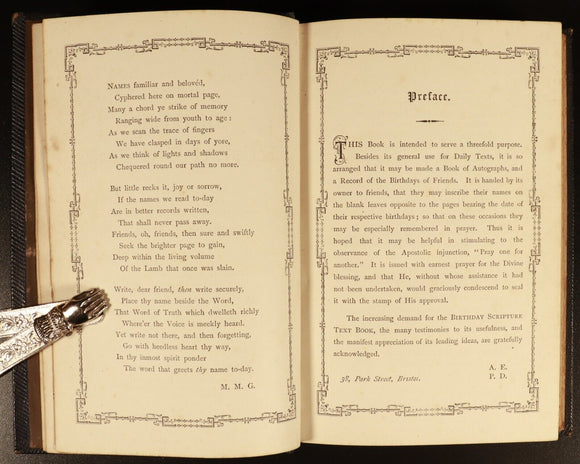 NAMES familiar and belovéd,
Cyphered here on mortal page,
Many a chord ye strike of memory
Ranging wide from youth to age:
As we scan the trace of fingers
We have clasped in days of yore,
As we think of lights and shadows
Chequered round our path no more.
But little recks it, joy or sorrow,
If the names we read to-day
Are in better records written,
That shall never pass away.
Friends, oh, friends, then sure and swiftly
Seek the brighter page to gain,
Deep within the living volume
Of the Lamb that once was slain.
Write, dear friend, then write securely,
Place thy name beside the Word,
That Word of Truth which dwelleth richly
Where'er the Voice is meekly heard.
Yet write not there, and then forgetting,
Go with heedless heart thy way,
In thy inmost spirit ponder
The word that greets thy name to-day.
M. M. G.
Preface.
THIS Book is intended to serve a threefold purpose.
Besides its general use for Daily Texts, it is so
arranged that it may be made a Book of Autographs, and
a Record of the Birthdays of Friends. It is handed by its
owner to friends, that they may inscribe their names on
the blank leaves opposite to the pages bearing the date of
their respective birthdays; so that on these occasions they
may be especially remembered in prayer. Thus it is
hoped that it may be helpful in stimulating to the
observance of the Apostolic injunction, "Pray one for
another." It is issued with earnest prayer for the Divine
blessing, and that He, without whose assistance it had
not been undertaken, would graciously condescend to seal
it with the stamp of His approval.
The increasing demand for the BIRTHDAY SCRIPTURE
TEXT BOOK, the many testimonies to its usefulness, and
the manifest appreciation of its leading ideas, are gratefully
acknowledged.
A. E.
P. D.
38, Park Street, Bristol.